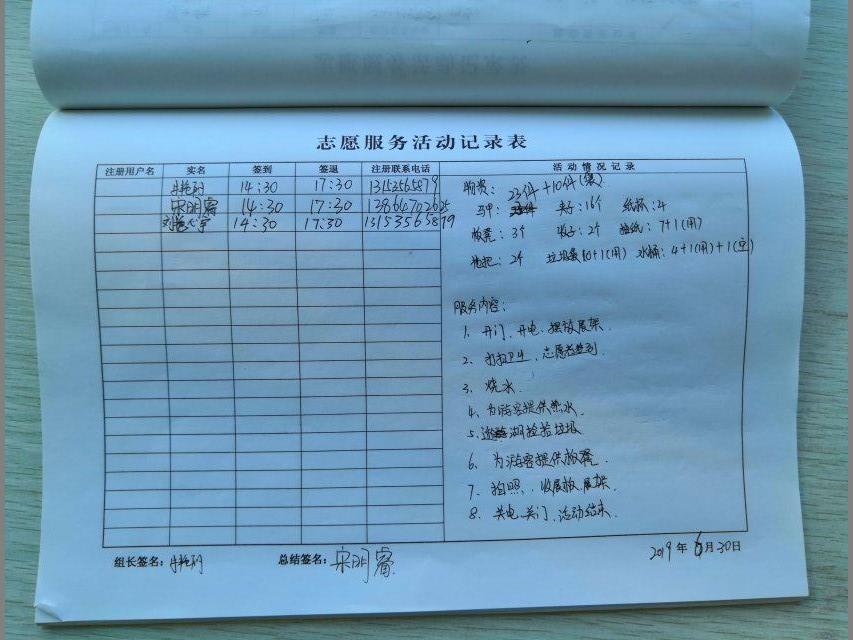 志愿服务活动记录表
注册用户名 实名 签到 签退 注册联系电话 活动情况记录
14:30 17:30 13153565879
宋明睿 14:30 17:30
14:30 17:30 13153565879
物资: 23件+10件(袋)
夹子:16个 纸杯:4
板凳:3个 7+1(用)
拖把:2个 垃圾袋10+1(用) 水桶:4+1(用)+1(空)
服务内容:
1、开门、开电、摆放展架、
2、打扫卫生、志愿者签到、
3、烧水、
4、为游客提供热水、
5、湖捡拾垃圾
6、为游客提供板凳、
7、拍照、收展板、展架、
8、关电、关门、活动结束、
组长签名: 总结签名:宋明睿 2019年6月30日